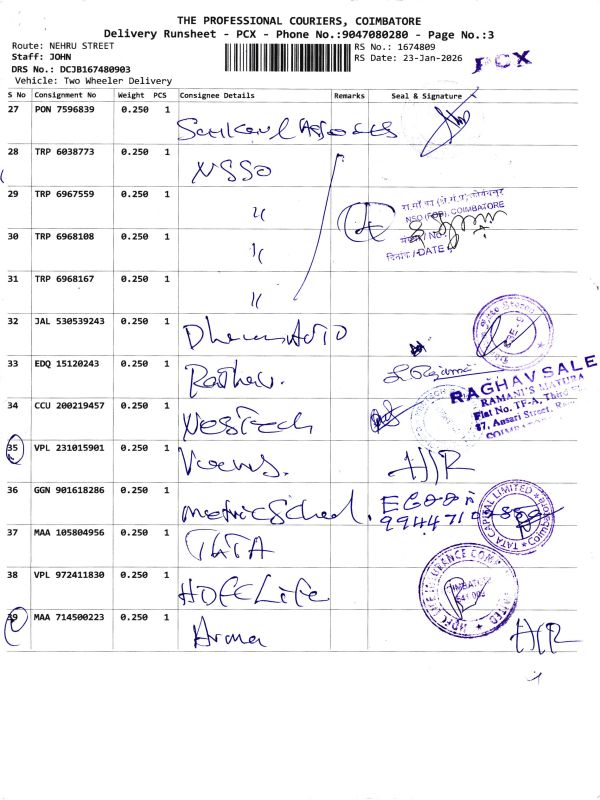 THE PROFESSIONAL COURIERS, COIMBATORE
Delivery Runsheet - PCX - Phone No.:9047080280 - Page No.:3
Route: NEHRU STREET
RS No.: 1674809
Staff: JOHN
RS Date: 23-Jan-2026
PCX
DRS No.: DCJB167480903
Vehicle: Two Wheeler Delivery
S No Consignment No Weight PCS Consignee Details Remarks Seal & Signature
27 PON 7596839 0.250 1
28 TRP 6038773 0.250 1 NSSO
29 TRP 6967559 0.250 1 "
NSO (FOD), COIMBATORE
30 TRP 6968108 0.250 1 "
/ NO
/ DATE
31 TRP 6968167 0.250 1 "
32 JAL 530539243 0.250 1
33 EDQ 15120243 0.250 1
RAGHAV SALE
RAMANI'S MAYURA
Flat No. TF-A, Third
87, Ansari Street,
34 CCU 200219457 0.250 1 Nestech
35 VPL 231015901 0.250 1
36 GGN 901618286 0.250 1
TATA CAPITAL LIMITED
37 MAA 105804956 0.250 1 TATA
38 VPL 972411830 0.250 1 HDFC Life
39 MAA 714500223 0.250 1